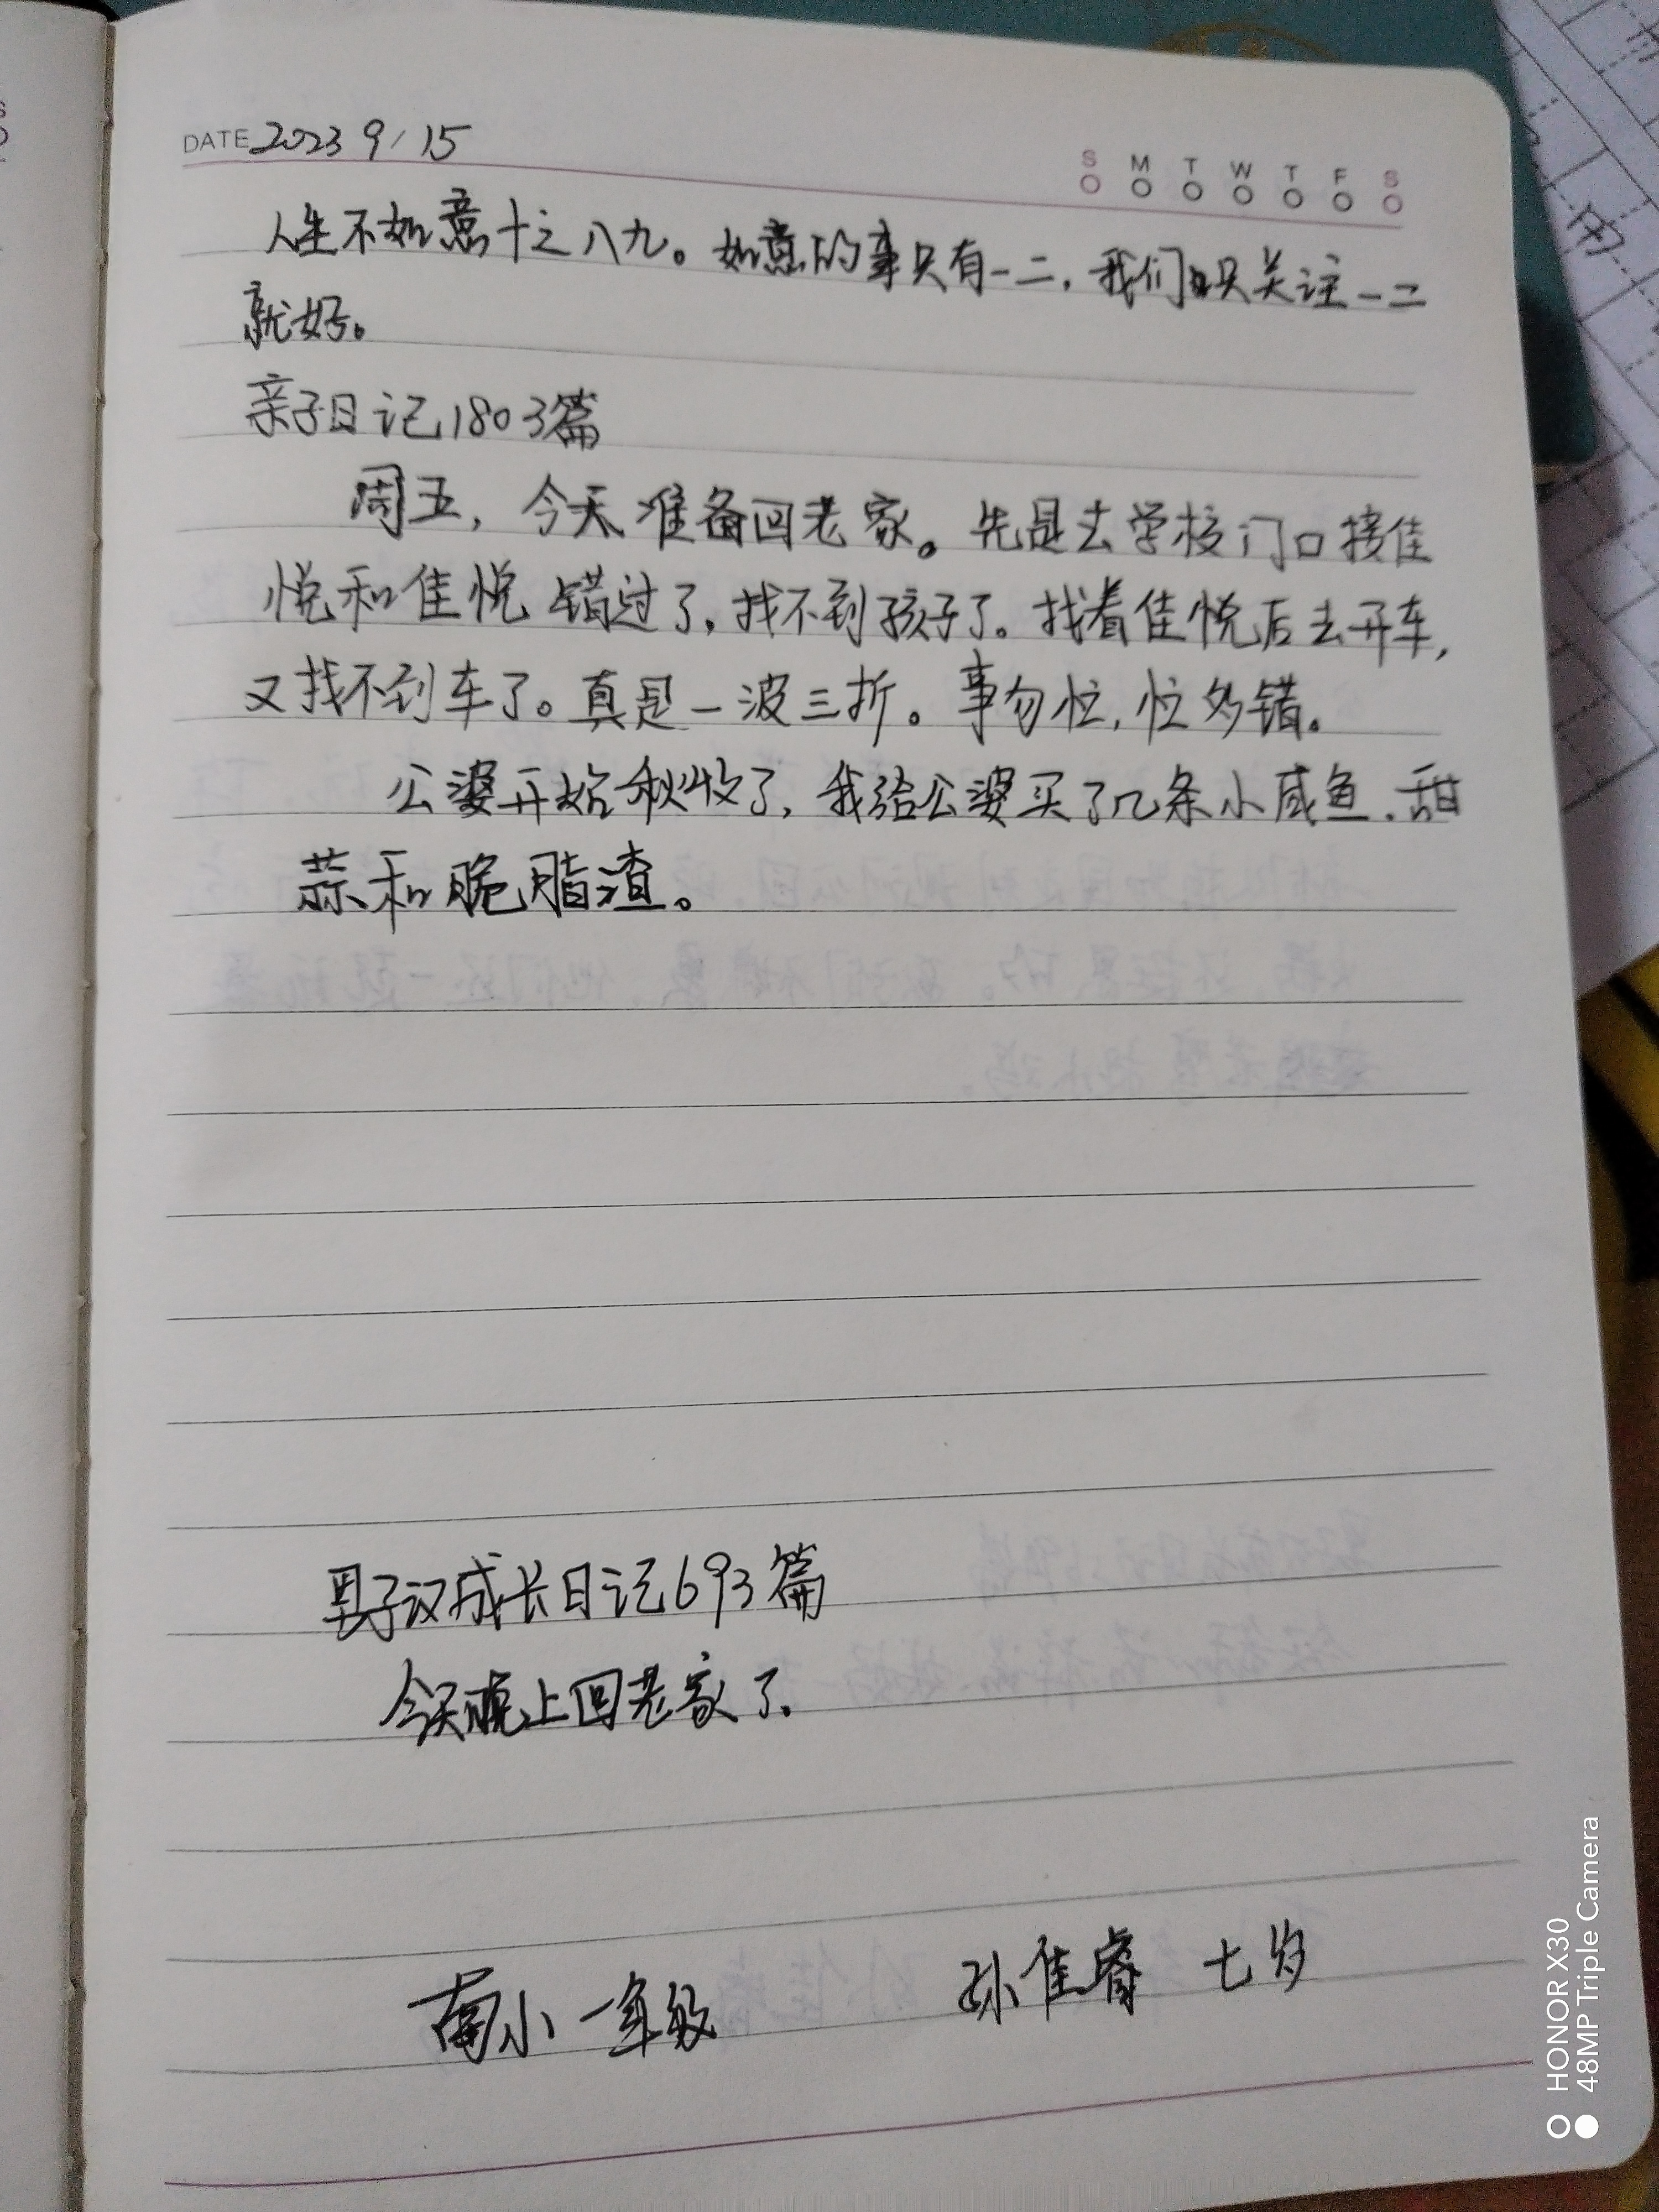 DATE 2023 9/15
S M T W T F S
人生不如意十之八九。如意的事只有一二，我们只关注一二
就好。
亲子日记1803篇
周五，今天准备回老家。先是去学校门口接佳
悦和佳悦错过了，找不到孩子了。找着佳悦后去开车，
又找不到车了。真是一波三折。事勿忙，忙多错。
公婆开始秋收了，我给公婆买了几条小咸鱼、甜
蒜和脆脂渣。
男子汉成长日记693篇
今天晚上回老家了、
南小 一年级 孙佳睿 七岁
HONOR X30
48MP Triple Camera